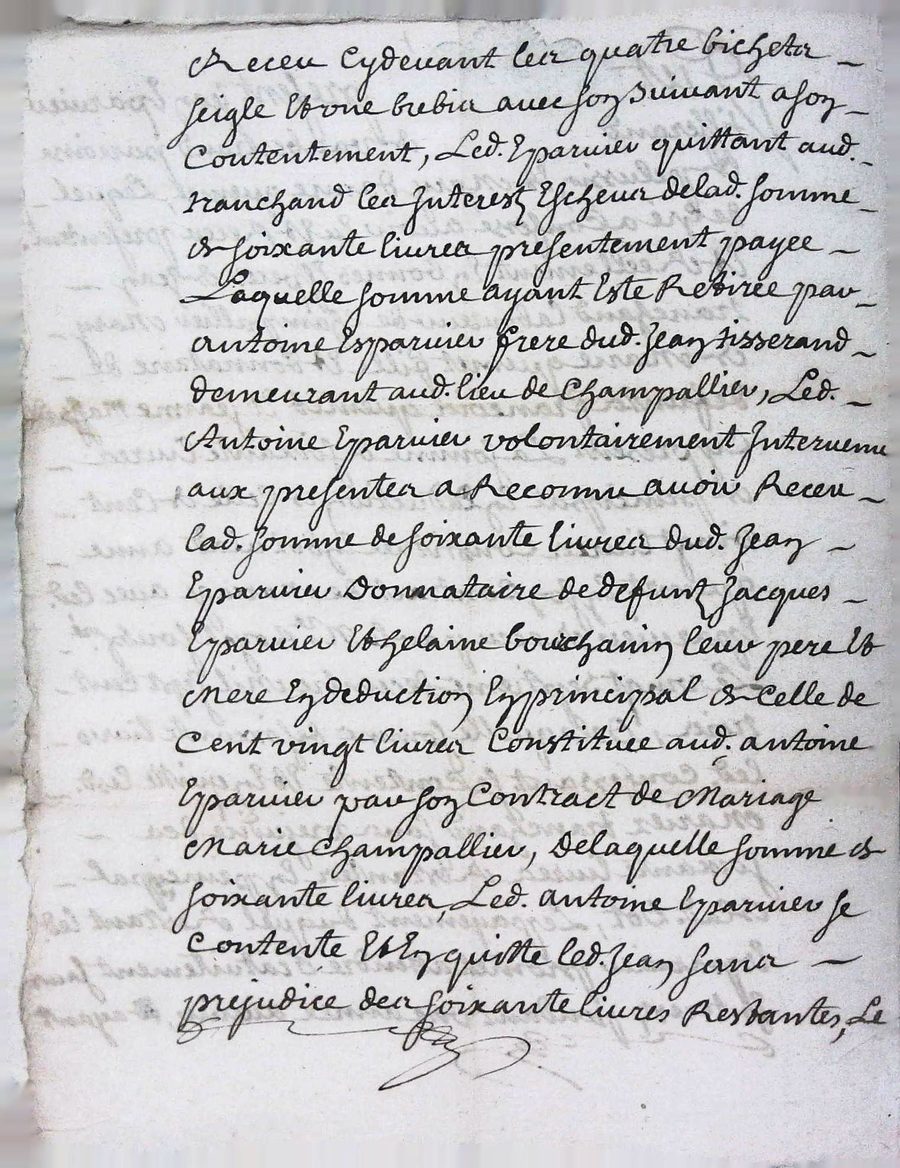 Receu Cydevant les quatre bichets
seigle Et une brebis avec son Suivant a son
Contentement, Led. Eparvier quittant aud.
tranchand les Interest Escheus de lad. somme
de soixante livres presentement payee
Laquelle somme ayant Este Retirée par
antoine Esparvier frere dud. Jean tisserand
demeurant aud. lieu de Champallier, Led.
Antoine Eparvier volontairement Intervenu
aux presentes a Reconnu avoir Receu
lad. somme de soixante livres dud. Jean
Eparvier Donnataire de defunt Jacques
Eparvier Et helaine bouchanin leur pere Et
Mere En deduction En principal de Celle de
Cent vingt livres Constituee aud. antoine
Eparvier par son Contract de Mariage
Marie Champallier, De laquelle somme de
soixante livres, Led. antoine Eparvier se
Contente Et En quitte led. Jean sans
prejudice des soixante livres Restantes, Le